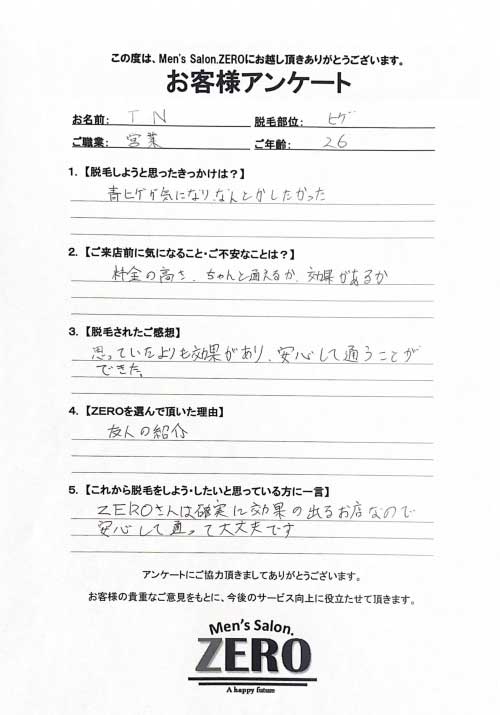 この度は、Men's Salon.ZEROにお越し頂きありがとうございます。
お客様アンケート
お名前: TN 脱毛部位: ヒゲ
ご職業: 営業 ご年齢: 26
1.【脱毛しようと思ったきっかけは？】
青ヒゲが気になりなんとかしたかった
2.【ご来店前に気になること・ご不安なことは？】
料金の高さ、ちゃんと通えるか、効果があるか
3.【脱毛されたご感想】
思っていたよりも効果があり、安心して通うことが
できた。
4.【ZEROを選んで頂いた理由】
友人の紹介
5.【これから脱毛をしよう・したいと思っている方に一言】
ZEROさんは確実に効果の出るお店なので
安心して通って大丈夫です
アンケートにご協力頂きましてありがとうございます。
お客様の貴重なご意見をもとに、今後のサービス向上に役立たせて頂きます。
Men's Salon.
ZERO
A happy future